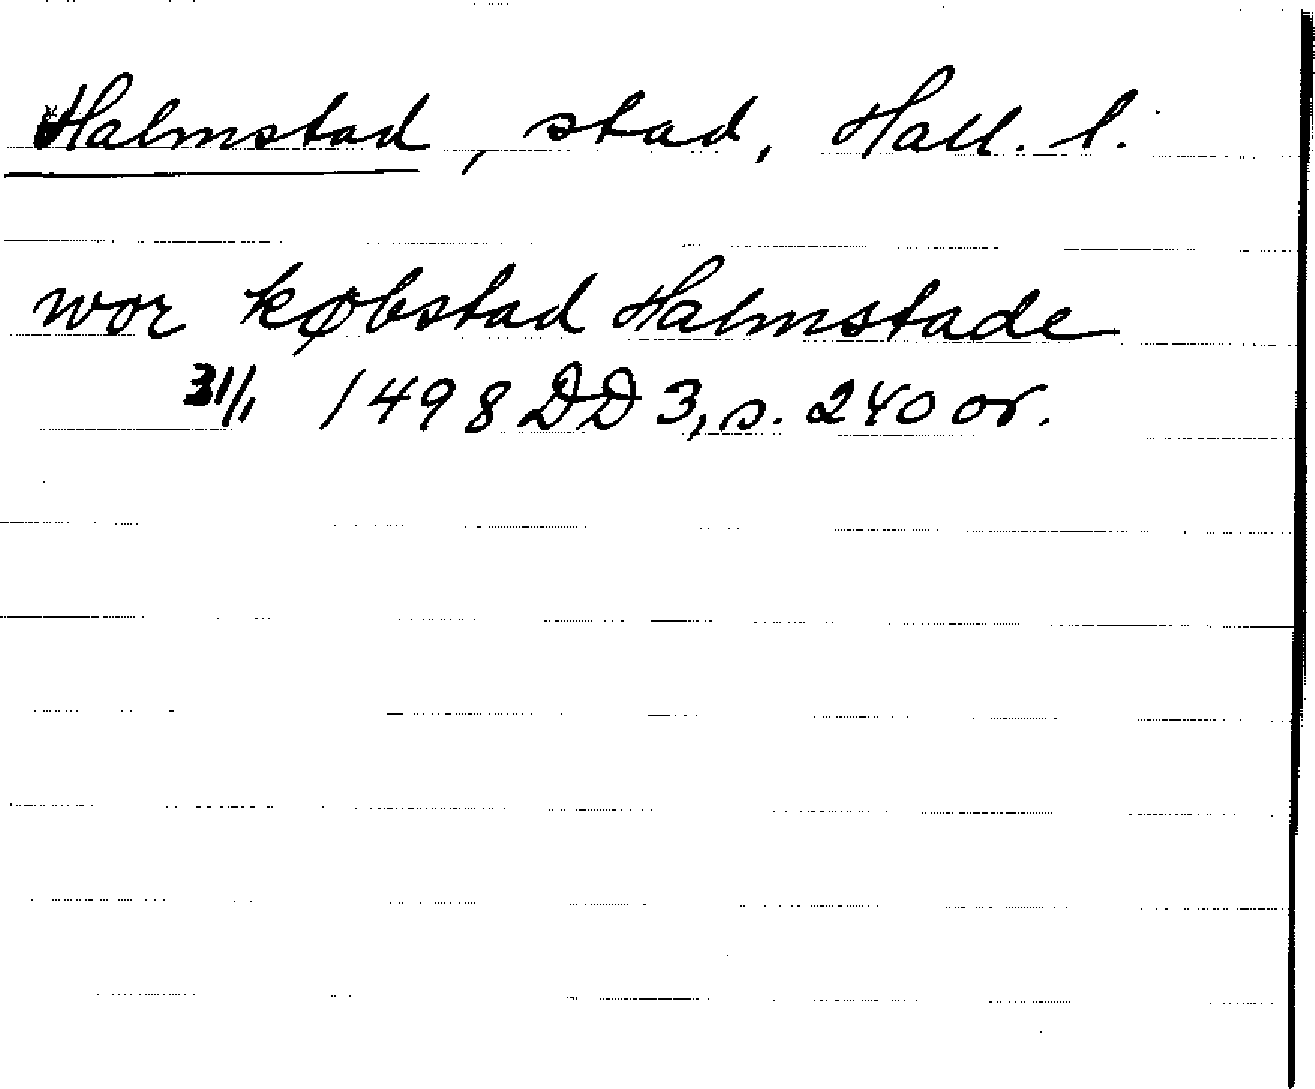 Halmstad, stad, Hall. l.
wor købstad Halmstade
31/1 1498 DD 3, s. 240 or.